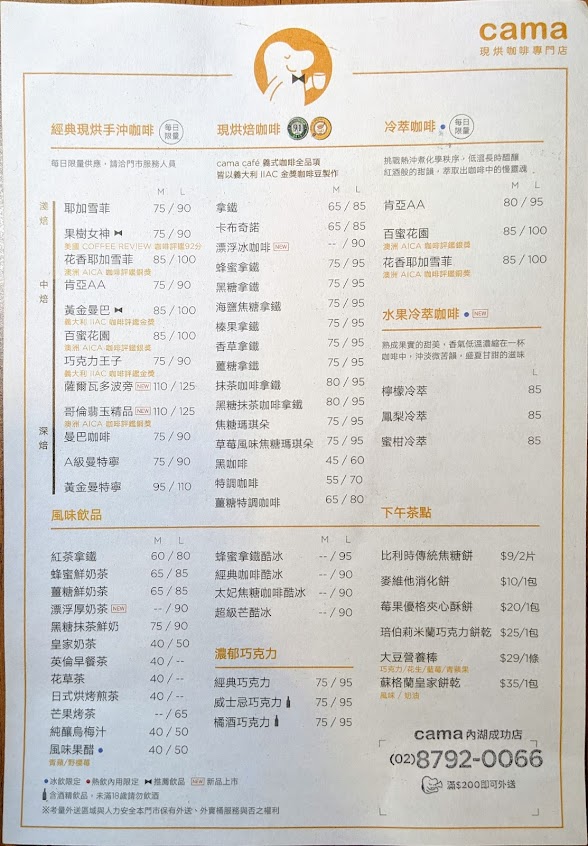 cama
現烘咖啡專門店
經典現烘手沖咖啡 每日限量
每日限量供應，請洽門市服務人員
M L
淺焙
耶加雪菲 75 / 90
果樹女神 75 / 90
美國 COFFEE REVIEW 咖啡評鑑92分
花香耶加雪菲 85 / 100
澳洲 AICA 咖啡評鑑銅獎
中焙
肯亞AA 75 / 90
黃金曼巴 85 / 100
義大利 IIAC 咖啡評鑑金獎
百蜜花園 85 / 100
澳洲 AICA 咖啡評鑑銀獎
巧克力王子 75 / 90
義大利 IIAC 咖啡評鑑金獎
薩爾瓦多波旁 NEW 110 / 125
哥倫翡玉精品 NEW 110 / 125
澳洲 AICA 咖啡評鑑銅獎
深焙
曼巴咖啡 75 / 90
A級曼特寧 75 / 90
黃金曼特寧 95 / 110
現烘焙咖啡
cama café 義式咖啡全品項
皆以義大利 IIAC 金獎咖啡豆製作
M L
拿鐵 65 / 85
卡布奇諾 65 / 85
漂浮冰咖啡 NEW -- / 90
蜂蜜拿鐵 75 / 95
黑糖拿鐵 75 / 95
海鹽焦糖拿鐵 75 / 95
榛果拿鐵 75 / 95
香草拿鐵 75 / 95
薑糖拿鐵 75 / 95
抹茶咖啡拿鐵 80 / 95
黑糖抹茶咖啡拿鐵 80 / 95
焦糖瑪琪朵 75 / 95
草莓風味焦糖瑪琪朵 75 / 95
黑咖啡 45 / 60
特調咖啡 55 / 70
薑糖特調咖啡 65 / 80
冷萃咖啡 每日限量
挑戰熱沖煮化學秩序，低溫長時醞釀
紅酒般的甜韻，萃取出咖啡中的慢靈魂
M L
肯亞AA 80 / 95
百蜜花園 85 / 100
澳洲 AICA 咖啡評鑑銀獎
花香耶加雪菲 85 / 100
澳洲 AICA 咖啡評鑑銅獎
水果冷萃咖啡 NEW
熟成果實的甜美，香氣低溫濃縮在一杯
咖啡中，沖淡微苦韻，盛夏甘甜的滋味
L
檸檬冷萃 85
鳳梨冷萃 85
蜜柑冷萃 85
風味飲品
M L
紅茶拿鐵 60 / 80
蜂蜜鮮奶茶 65 / 85
薑糖鮮奶茶 65 / 85
漂浮厚奶茶 NEW -- / 90
黑糖抹茶鮮奶 75 / 90
皇家奶茶 40 / 50
英倫早餐茶 40 / --
花草茶 40 / --
日式烘烤煎茶 40 / --
芒果烤茶 -- / 65
純釀烏梅汁 40 / 50
風味果醋 40 / 50
青蘋/野櫻莓
M L
蜂蜜拿鐵酷冰 -- / 95
經典咖啡酷冰 -- / 90
太妃焦糖咖啡酷冰 -- / 90
超級芒酷冰 -- / 90
濃郁巧克力
經典巧克力 75 / 95
威士忌巧克力 75 / 95
橘酒巧克力 75 / 95
下午茶點
比利時傳統焦糖餅 $9/2片
麥維他消化餅 $10/1包
莓果優格夾心酥餅 $20/1包
琣伯莉米蘭巧克力餅乾 $25/1包
大豆營養棒 $29/1條
巧克力/花生/藍莓/青蘋果
蘇格蘭皇家餅乾 $35/1包
原味 / 奶油
cama 內湖成功店
(02)8792-0066
滿$200即可外送
冰飲限定 熱飲內用限定 推薦飲品 NEW 新品上市
含酒精飲品，未滿18歲請勿飲酒
※考量外送區域與人力安全本門市保有外送、外賣桶服務與否之權利